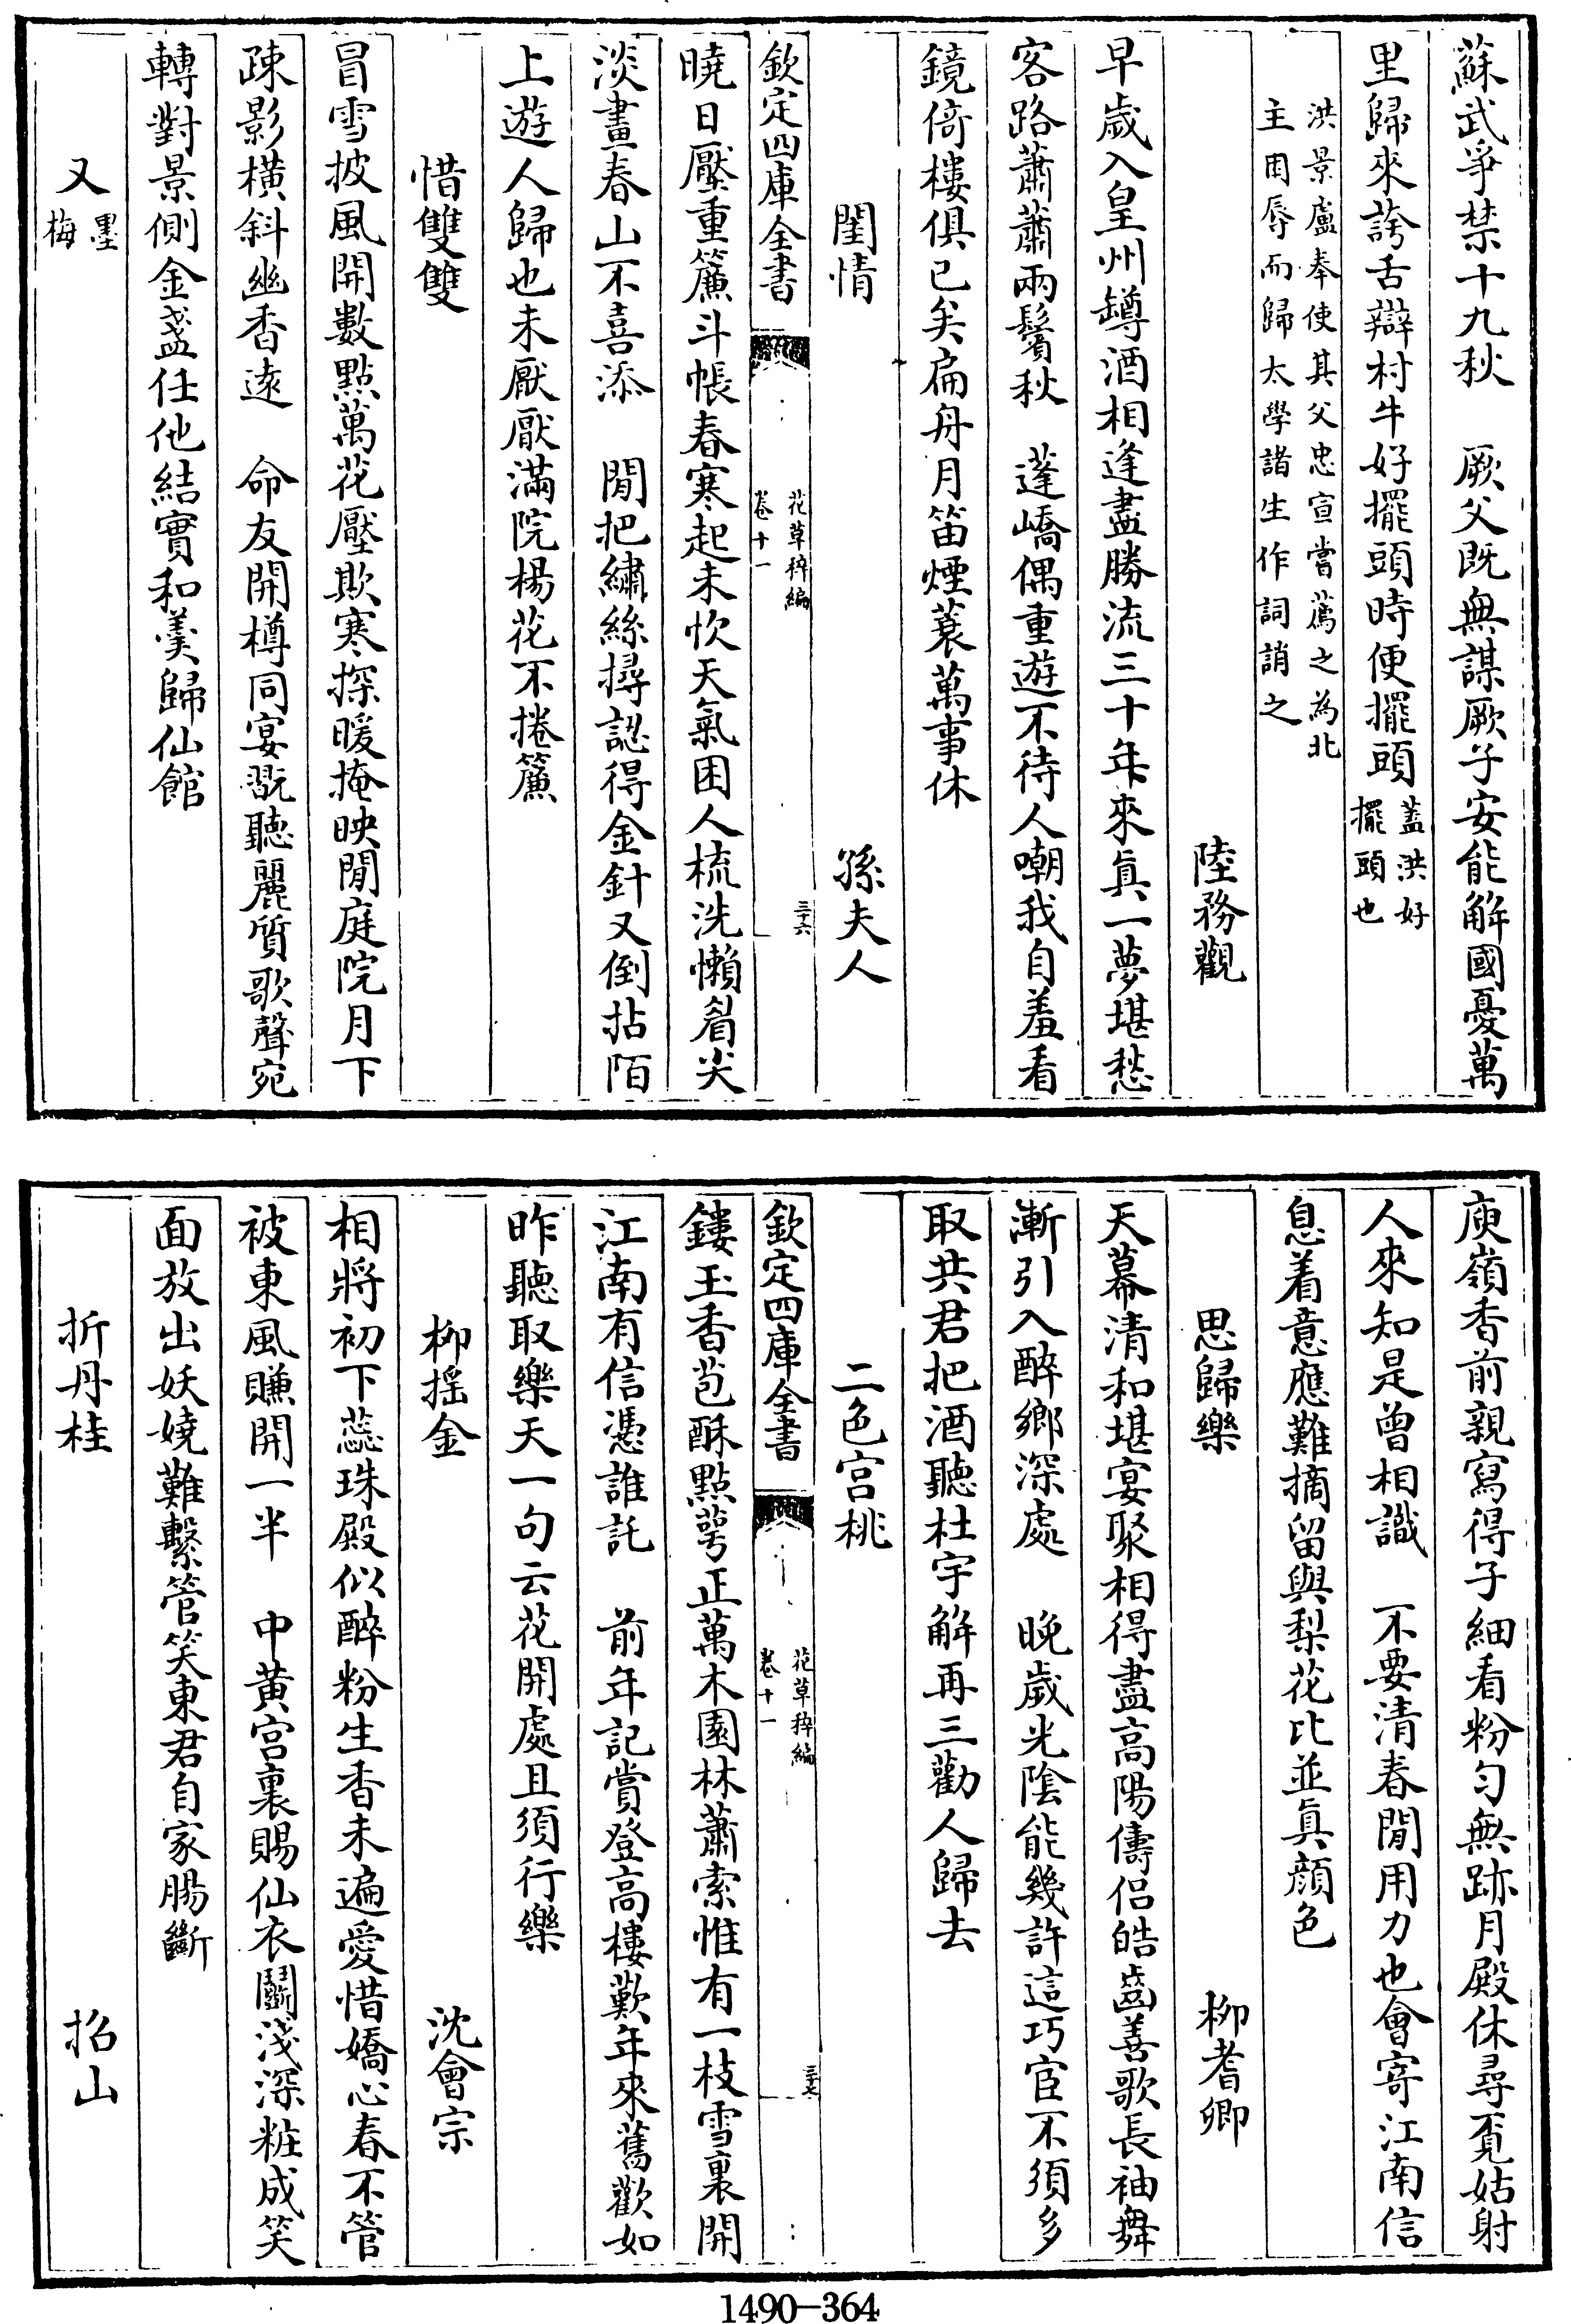 蘇武爭禁十九秋　厥父既無謀厥子安能解國憂萬
里歸來誇舌辯村牛好擺頭時便擺頭蓋洪好擺頭也
洪景盧奉使其父忠宣嘗薦之為北
主困辱而歸太學諸生作詞誚之
陸務觀
早歲入皇州罇酒相逢盡勝流三十年來真一夢堪愁
客路蕭蕭兩鬢秋　蓬嶠偶重遊不待人嘲我自羞看
鏡倚樓俱已矣扁舟月笛煙蓑萬事休
閨情　孫夫人
欽定四庫全書　花草稡編卷十一　三十六
曉日壓重簾斗帳春寒起未忺天氣困人梳洗懶眉尖
淡畫春山不喜添　閒把繡絲撏認得金針又倒拈陌
上遊人歸也未厭厭滿院楊花不捲簾
惜雙雙
冒雪披風開數點萬花壓欺寒探暖掩映閒庭院月下
疎影橫斜幽香遠　命友開樽同宴翫聽麗質歌聲宛
轉對景側金盞任他結實和羹歸仙館
又墨梅
庾嶺香前親寫得子細看粉勻無跡月殿休尋覔姑射
人來知是曾相識　不要清春閒用力也會寄江南信
息着意應難摘留與梨花比並真顏色
思歸樂　柳耆卿
天幕清和堪宴聚相得盡高陽儔侶皓齒善歌長袖舞
漸引入醉鄉深處　晚歲光陰能幾許這巧宦不須多
取共君把酒聽杜宇解再三勸人歸去
二色宮桃
欽定四庫全書　花草稡編卷十一　三十七
鏤玉香苞酥點萼正萬木園林蕭索惟有一枝雪裏開
江南有信憑誰託　前年記賞登高樓歎年來舊歡如
昨聽取樂天一句云花開處且須行樂
柳搖金　沈會宗
相將初下蕊珠殿似醉粉生香未遍愛惜嬌心春不管
被東風賺開一半　中黃宮裏賜仙衣鬭淺深粧成笑
面放出妖嬈難繫管笑東君自家腸斷
折丹桂　招山
1490-364